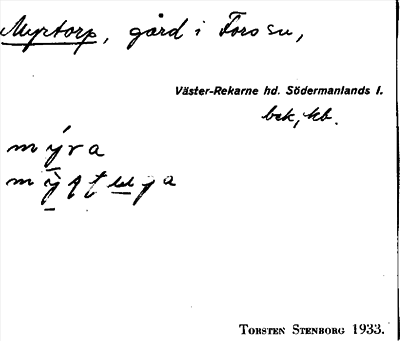 Myrtorp, gård i Forssu,
Väster-Rekarne hd. Södermanlands l.
bek, kb.
mýra
TORSTEN STENBORG 1933.